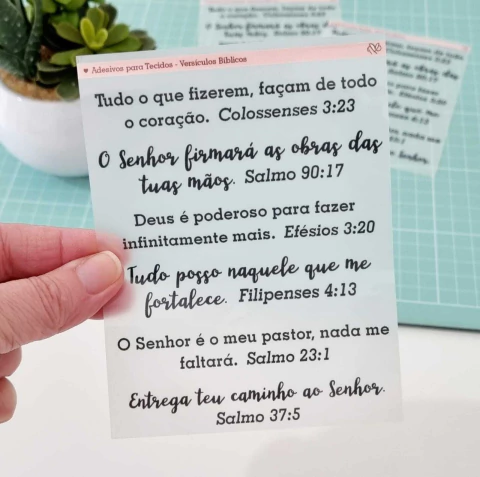 ♥ Adesivos para Tecidos - Versículos Bíblicos
Tudo o que fizerem, façam de todo
o coração. Colossenses 3:23
O Senhor firmará as obras das
tuas mãos. Salmo 90:17
Deus é poderoso para fazer
infinitamente mais. Efésios 3:20
Tudo posso naquele que me
fortalece. Filipenses 4:13
O Senhor é o meu pastor, nada me
faltará. Salmo 23:1
Entrega teu caminho ao Senhor.
Salmo 37:5